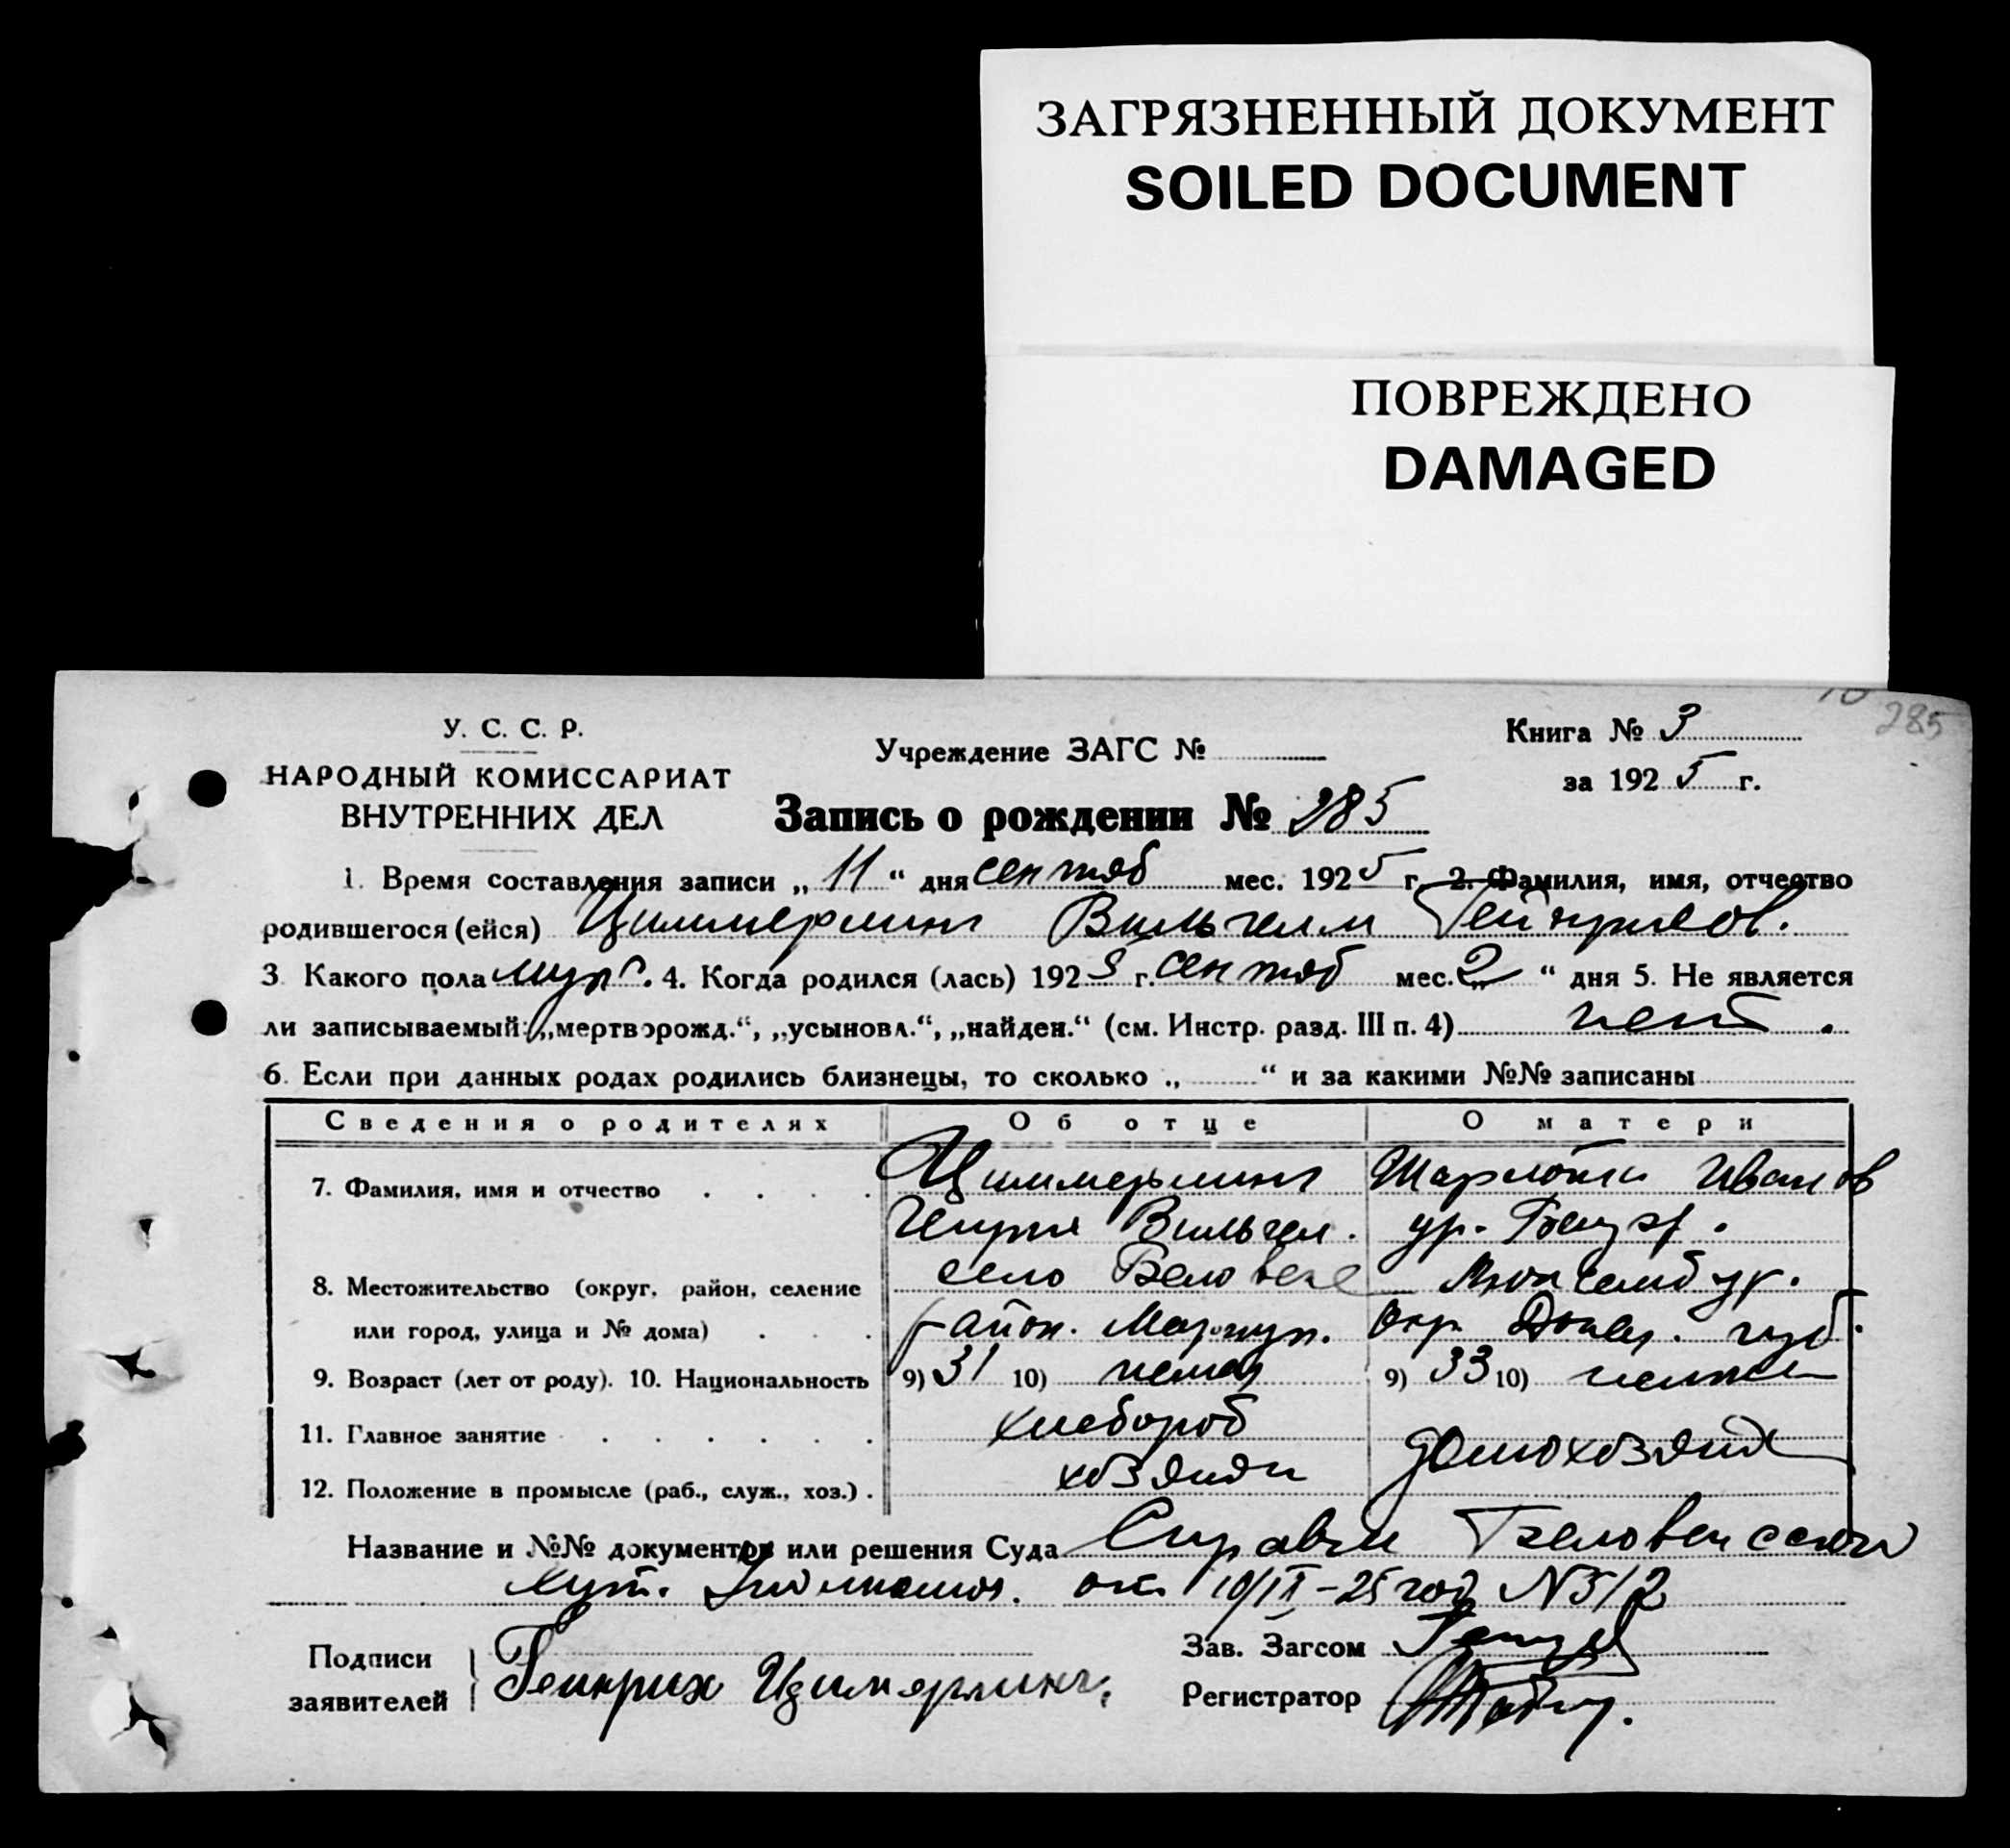 ЗАГРЯЗНЕННЫЙ ДОКУМЕНТ
SOILED DOCUMENT
ПОВРЕЖДЕНО
DAMAGED
285
У. С. С. Р.
Учреждение ЗАГС №
Книга № 3
НАРОДНЫЙ КОМИССАРИАТ
ВНУТРЕННИХ ДЕЛ
за 1925 г.
Запись о рождении № 285
1. Время составления записи „11“ дня сентяб мес. 1925 г. 2. Фамилия, имя, отчество
родившегося (ейся) Циммерлинг Вильгелм Гейнрихов.
3. Какого пола муж. 4. Когда родился (лась) 1925 г. сентяб мес. „2“ дня 5. Не является
ли записываемый: „мертворожд.“, „усыновл.“, „найден.“ (см. Инстр. разд. III п. 4) нет.
6. Если при данных родах родились близнецы, то сколько „ “ и за какими №№ записаны
Сведения о родителях Об отце О матери
7. Фамилия, имя и отчество Циммерлинг Шарлота Иванов
Вильгел. ур.
8. Местожительство (округ, район, селение село Беловеж
или город, улица и № дома) район. Мариуп. окр. Донец. губ.
9. Возраст (лет от роду). 10. Национальность 9) 31 10) немец 9) 33 10) немка
11. Главное занятие хлебороб домохозяйк
12. Положение в промысле (раб., служ., хоз.) хозяин
Название и №№ документов или решения Суда Справки Беловежсской
от 10/IX-25 год N 512
Подписи
заявителей Генрих Цимерлинг,
Зав. Загсом
Регистратор